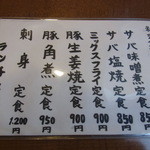 サバ味噌煮定食 850
サバ塩焼定食 850
ミックスフライ定食 900
豚生姜焼定食 900
豚角煮定食 950
刺身定食 1,200